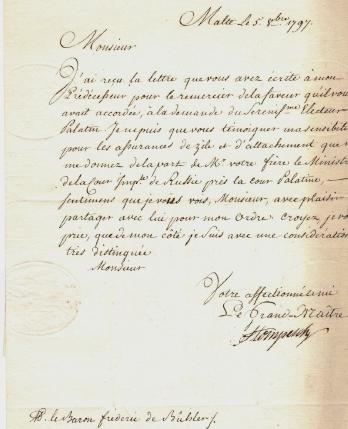 Malte Le 5e 8bre 1797.
Monsieur
J'ai reçu la lettre que vous avez écrite à mon
Prédécesseur pour le remercier de la faveur qu'il vous
avait accordée, à la demande du Sérénisme Electeur
Palatin. Je ne puis que vous témoigner ma sensibilité
pour les assurances de zèle et d'attachement que vous
me donnez de la part de Mr votre frère le Ministre
de la Cour Imple de Russie près la Cour Palatine
Sentimens que je vous vois, Monsieur, avec plaisir
partager avec lui pour mon Ordre. Croyez, je vous
prie, que de mon côté je suis avec une considération
très distinguée
Monsieur
Votre affectionné ami
Le Grand-Maître
Hompesch
M. le Baron fréderic de Bühler